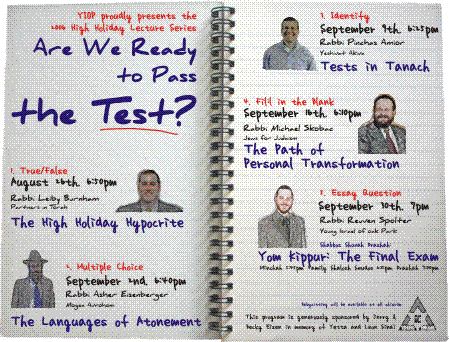 YIOP proudly presents the
2006 High Holiday Lecture Series
Are We Ready
to Pass
the Test?
1. True/False
August 26th 6:50pm
Rabbi Leiby Burnham
Partners in Torah
The High Holiday Hypocrite
2. Multiple Choice
September 2nd 6:40pm
Rabbi Asher Eisenberger
Mogen Avraham
The Languages of Atonement
3. Identify
September 9th 6:25pm
Rabbi Pinchas Amior
Yeshivat Akiva
Tests in Tanach
4. Fill in the Blank
September 16th 6:10pm
Rabbi Michael Skobac
Jews for Judaism
The Path of
Personal Transformation
5. Essay Question
September 30th 7pm
Rabbi Reuven Spolter
Young Israel of Oak Park
Shabbos Shuvah Drashah
Yom Kippur: The Final Exam
Babysitting will be available at all lectures
This program is generously sponsored by Jerry &
Becky Eizen in memory of Tessa and